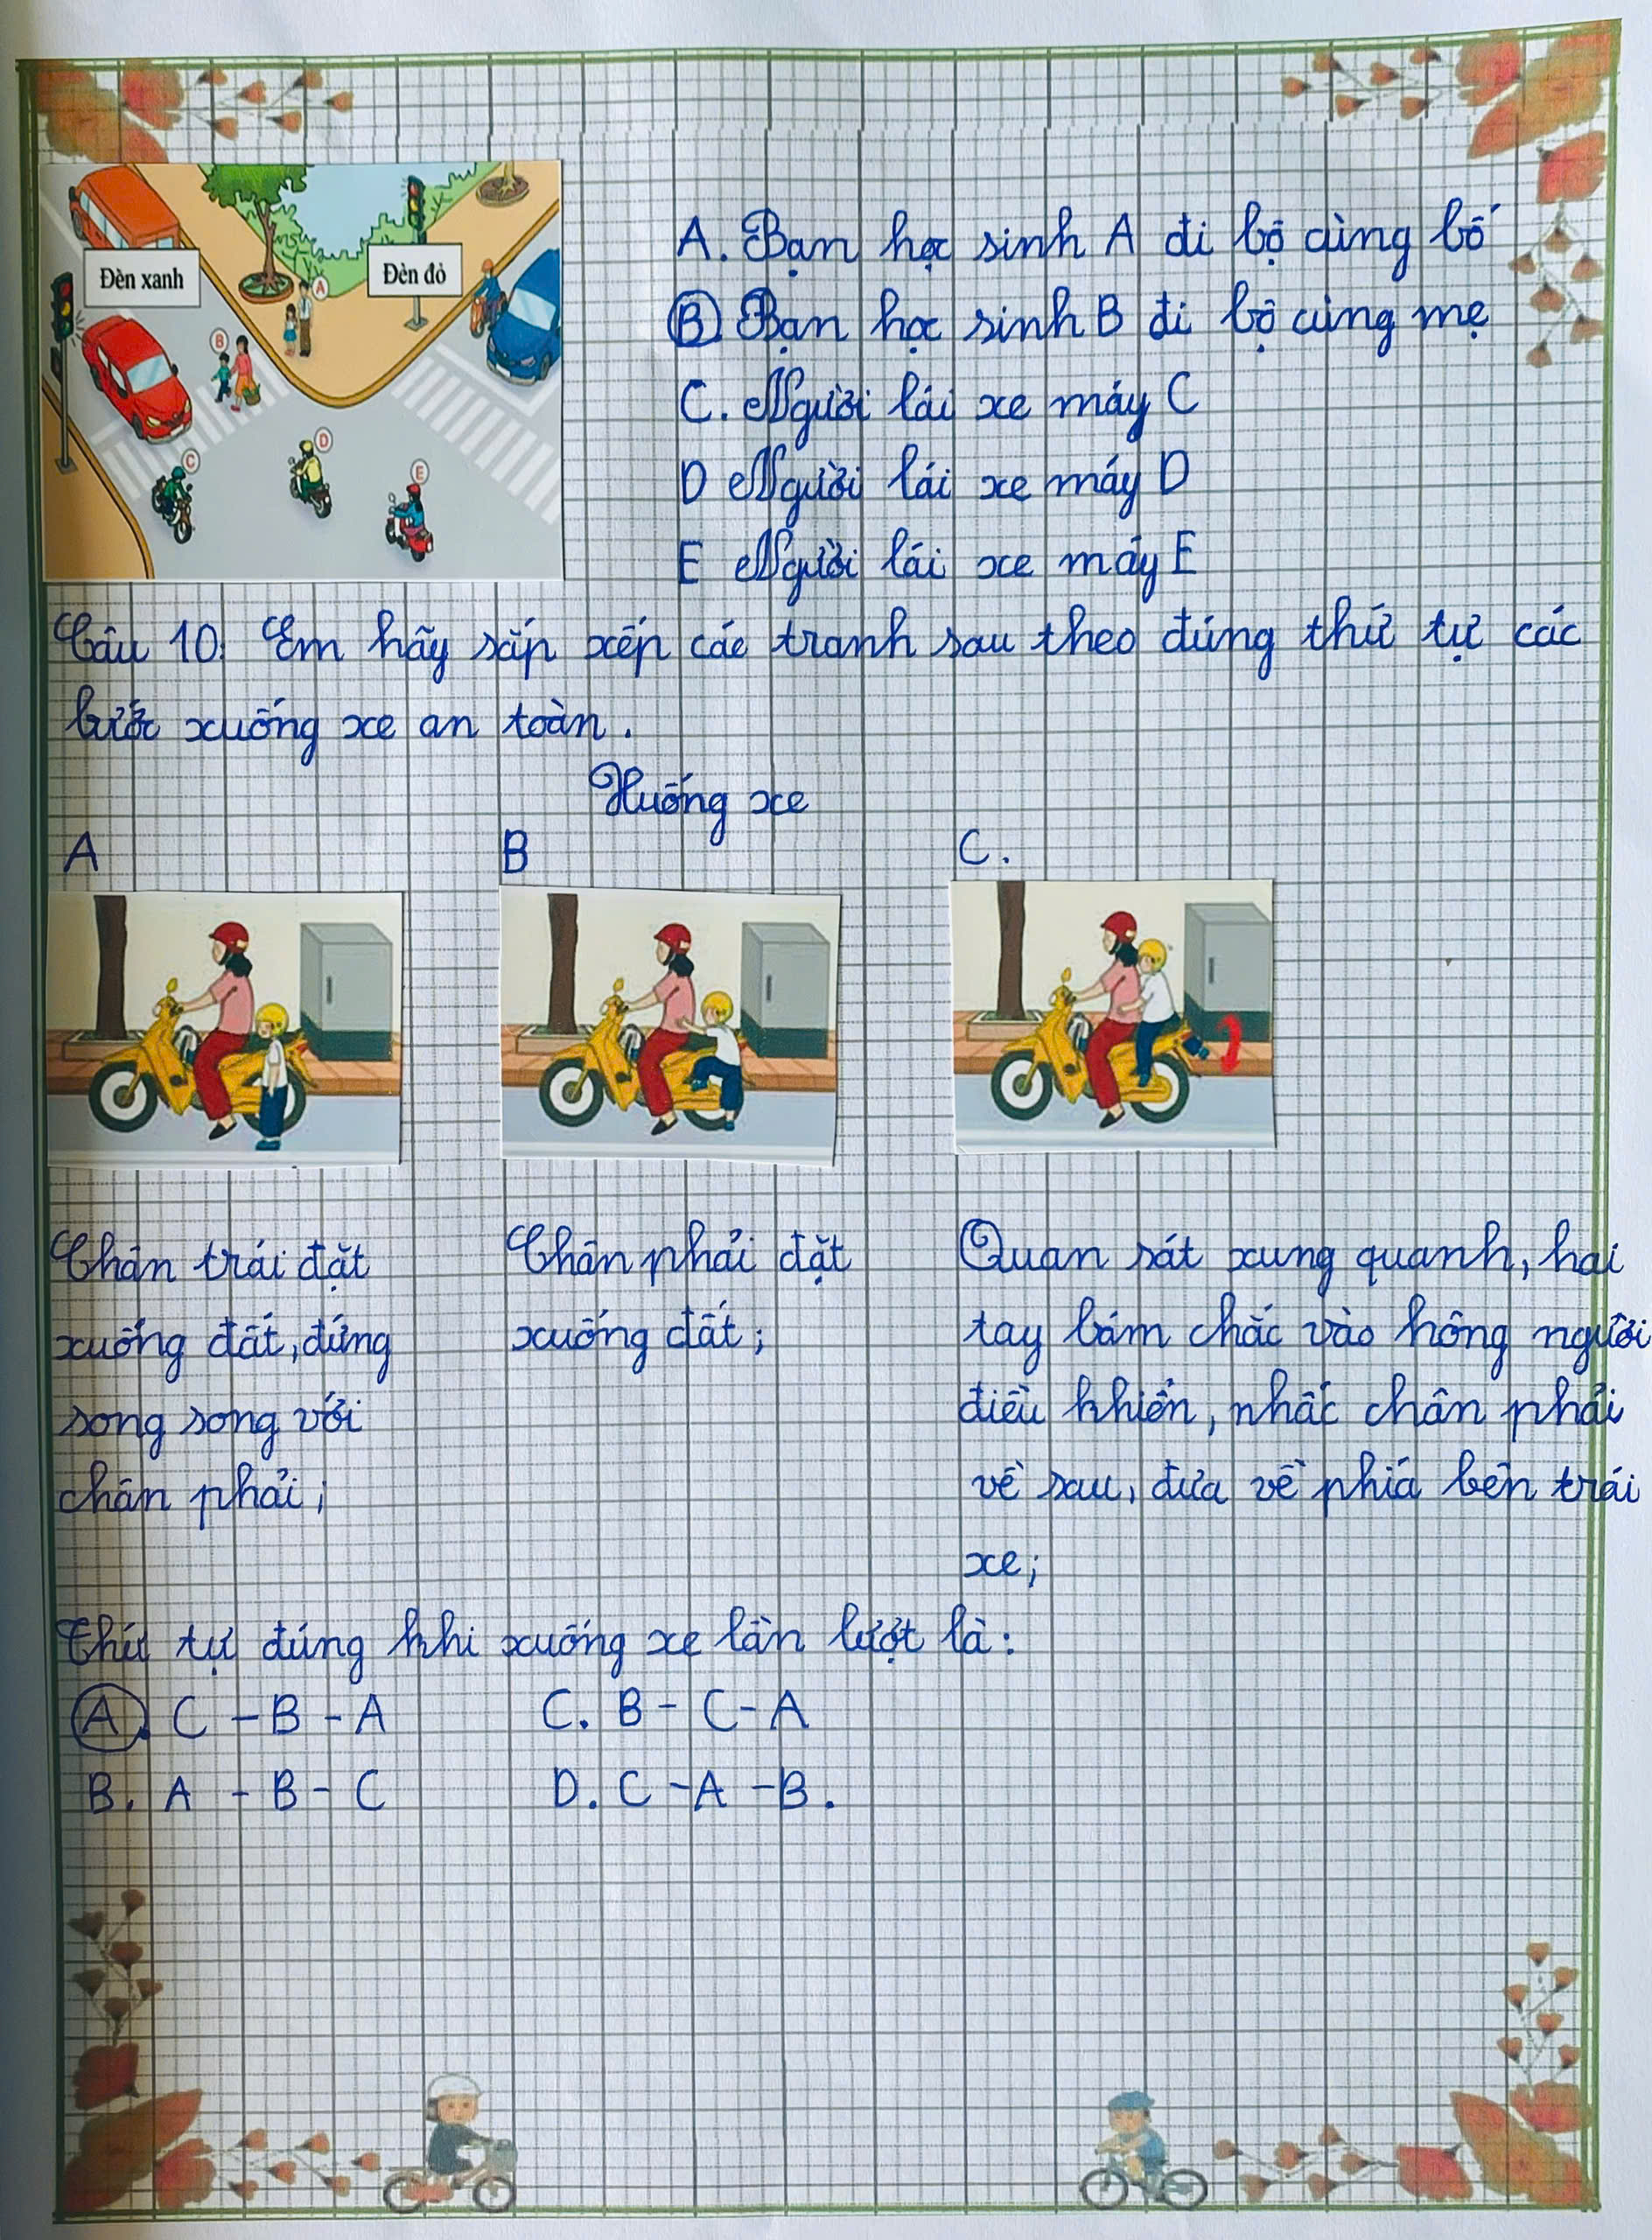 Đèn xanh
Đèn đỏ
A
B
C
D
E
A. Bạn học sinh A đi bộ cùng bố
B. Bạn học sinh B đi bộ cùng mẹ
C. Người lái xe máy C
D Người lái xe máy D
E Người lái xe máy E
Câu 10. Em hãy sắp xếp các tranh sau theo đúng thứ tự các
bước xuống xe an toàn.
Xuống xe
A B C.
Chân trái đặt
xuống đất, đứng
song song với
chân phải;
Chân phải đặt
xuống đất;
Quan sát xung quanh, hai
tay bám chắc vào hông người
điều khiển, nhấc chân phải
về sau, đưa về phía bên trái
xe;
Thứ tự đúng khi xuống xe lần lượt là:
A. C - B - A C. B - C - A
B. A - B - C D. C - A - B.